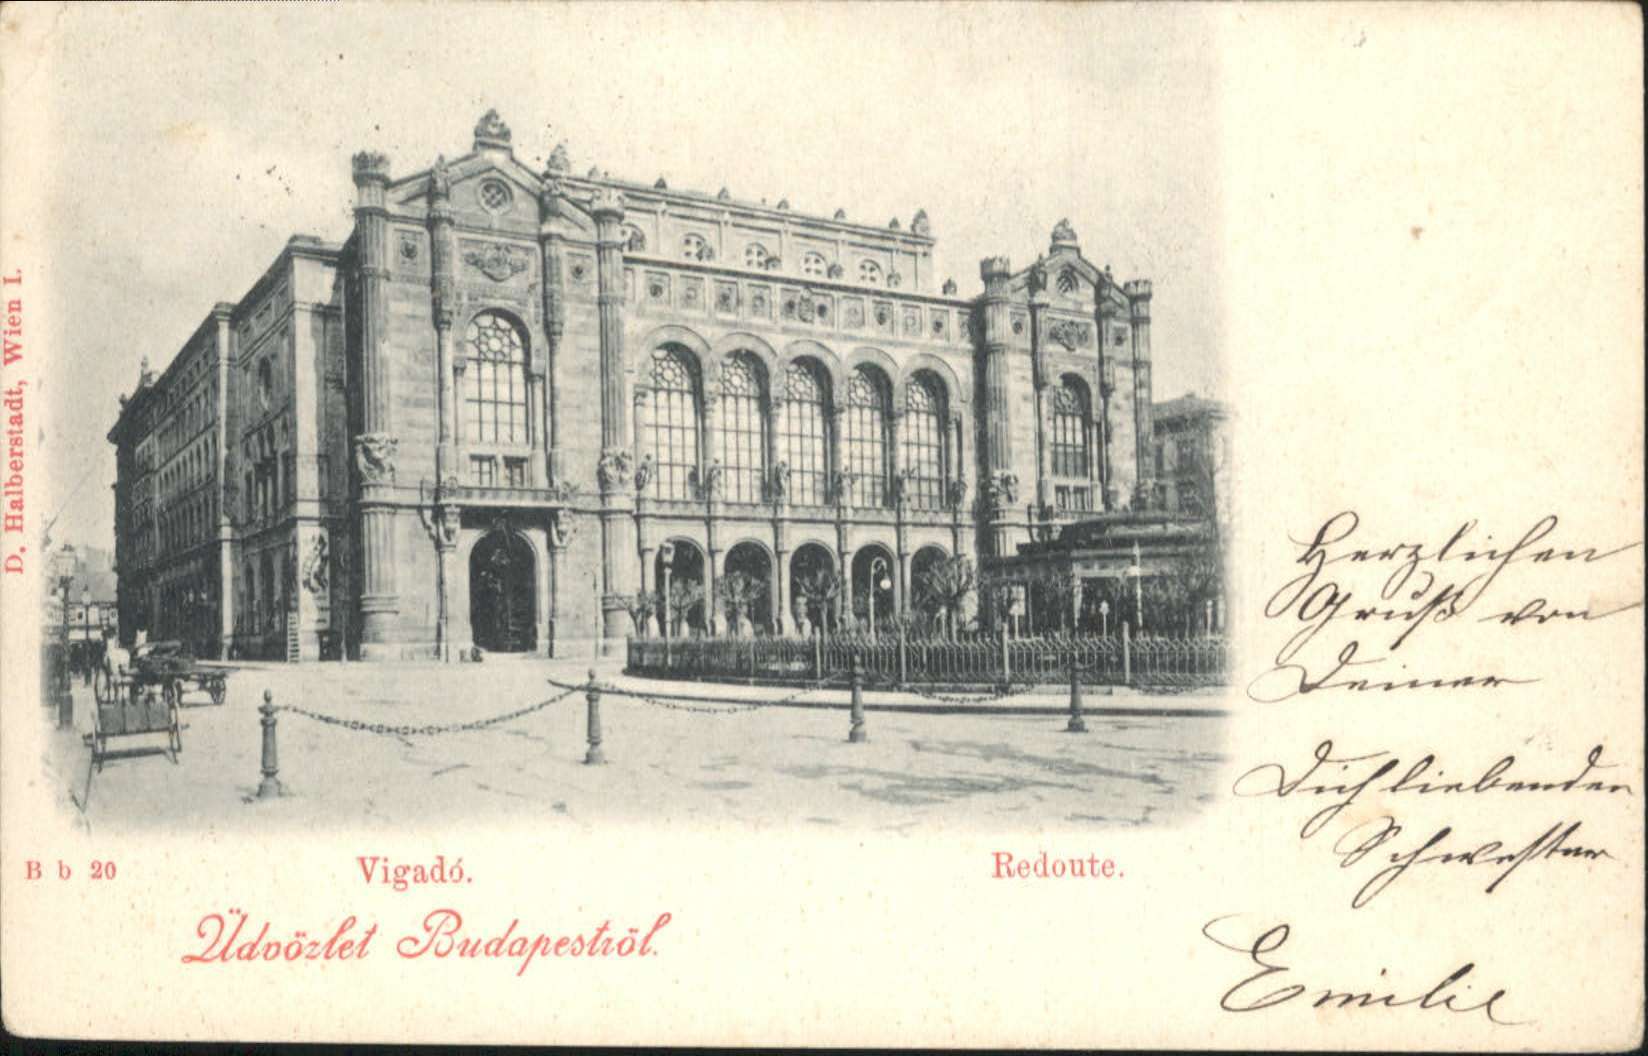 D. Halberstadt, Wien I.
Herzlichen
Gruß von
Deiner
Dich liebenden
Schwester
Emilie
B b 20 Vigadó. Redoute.
Üdvözlet Budapestről.